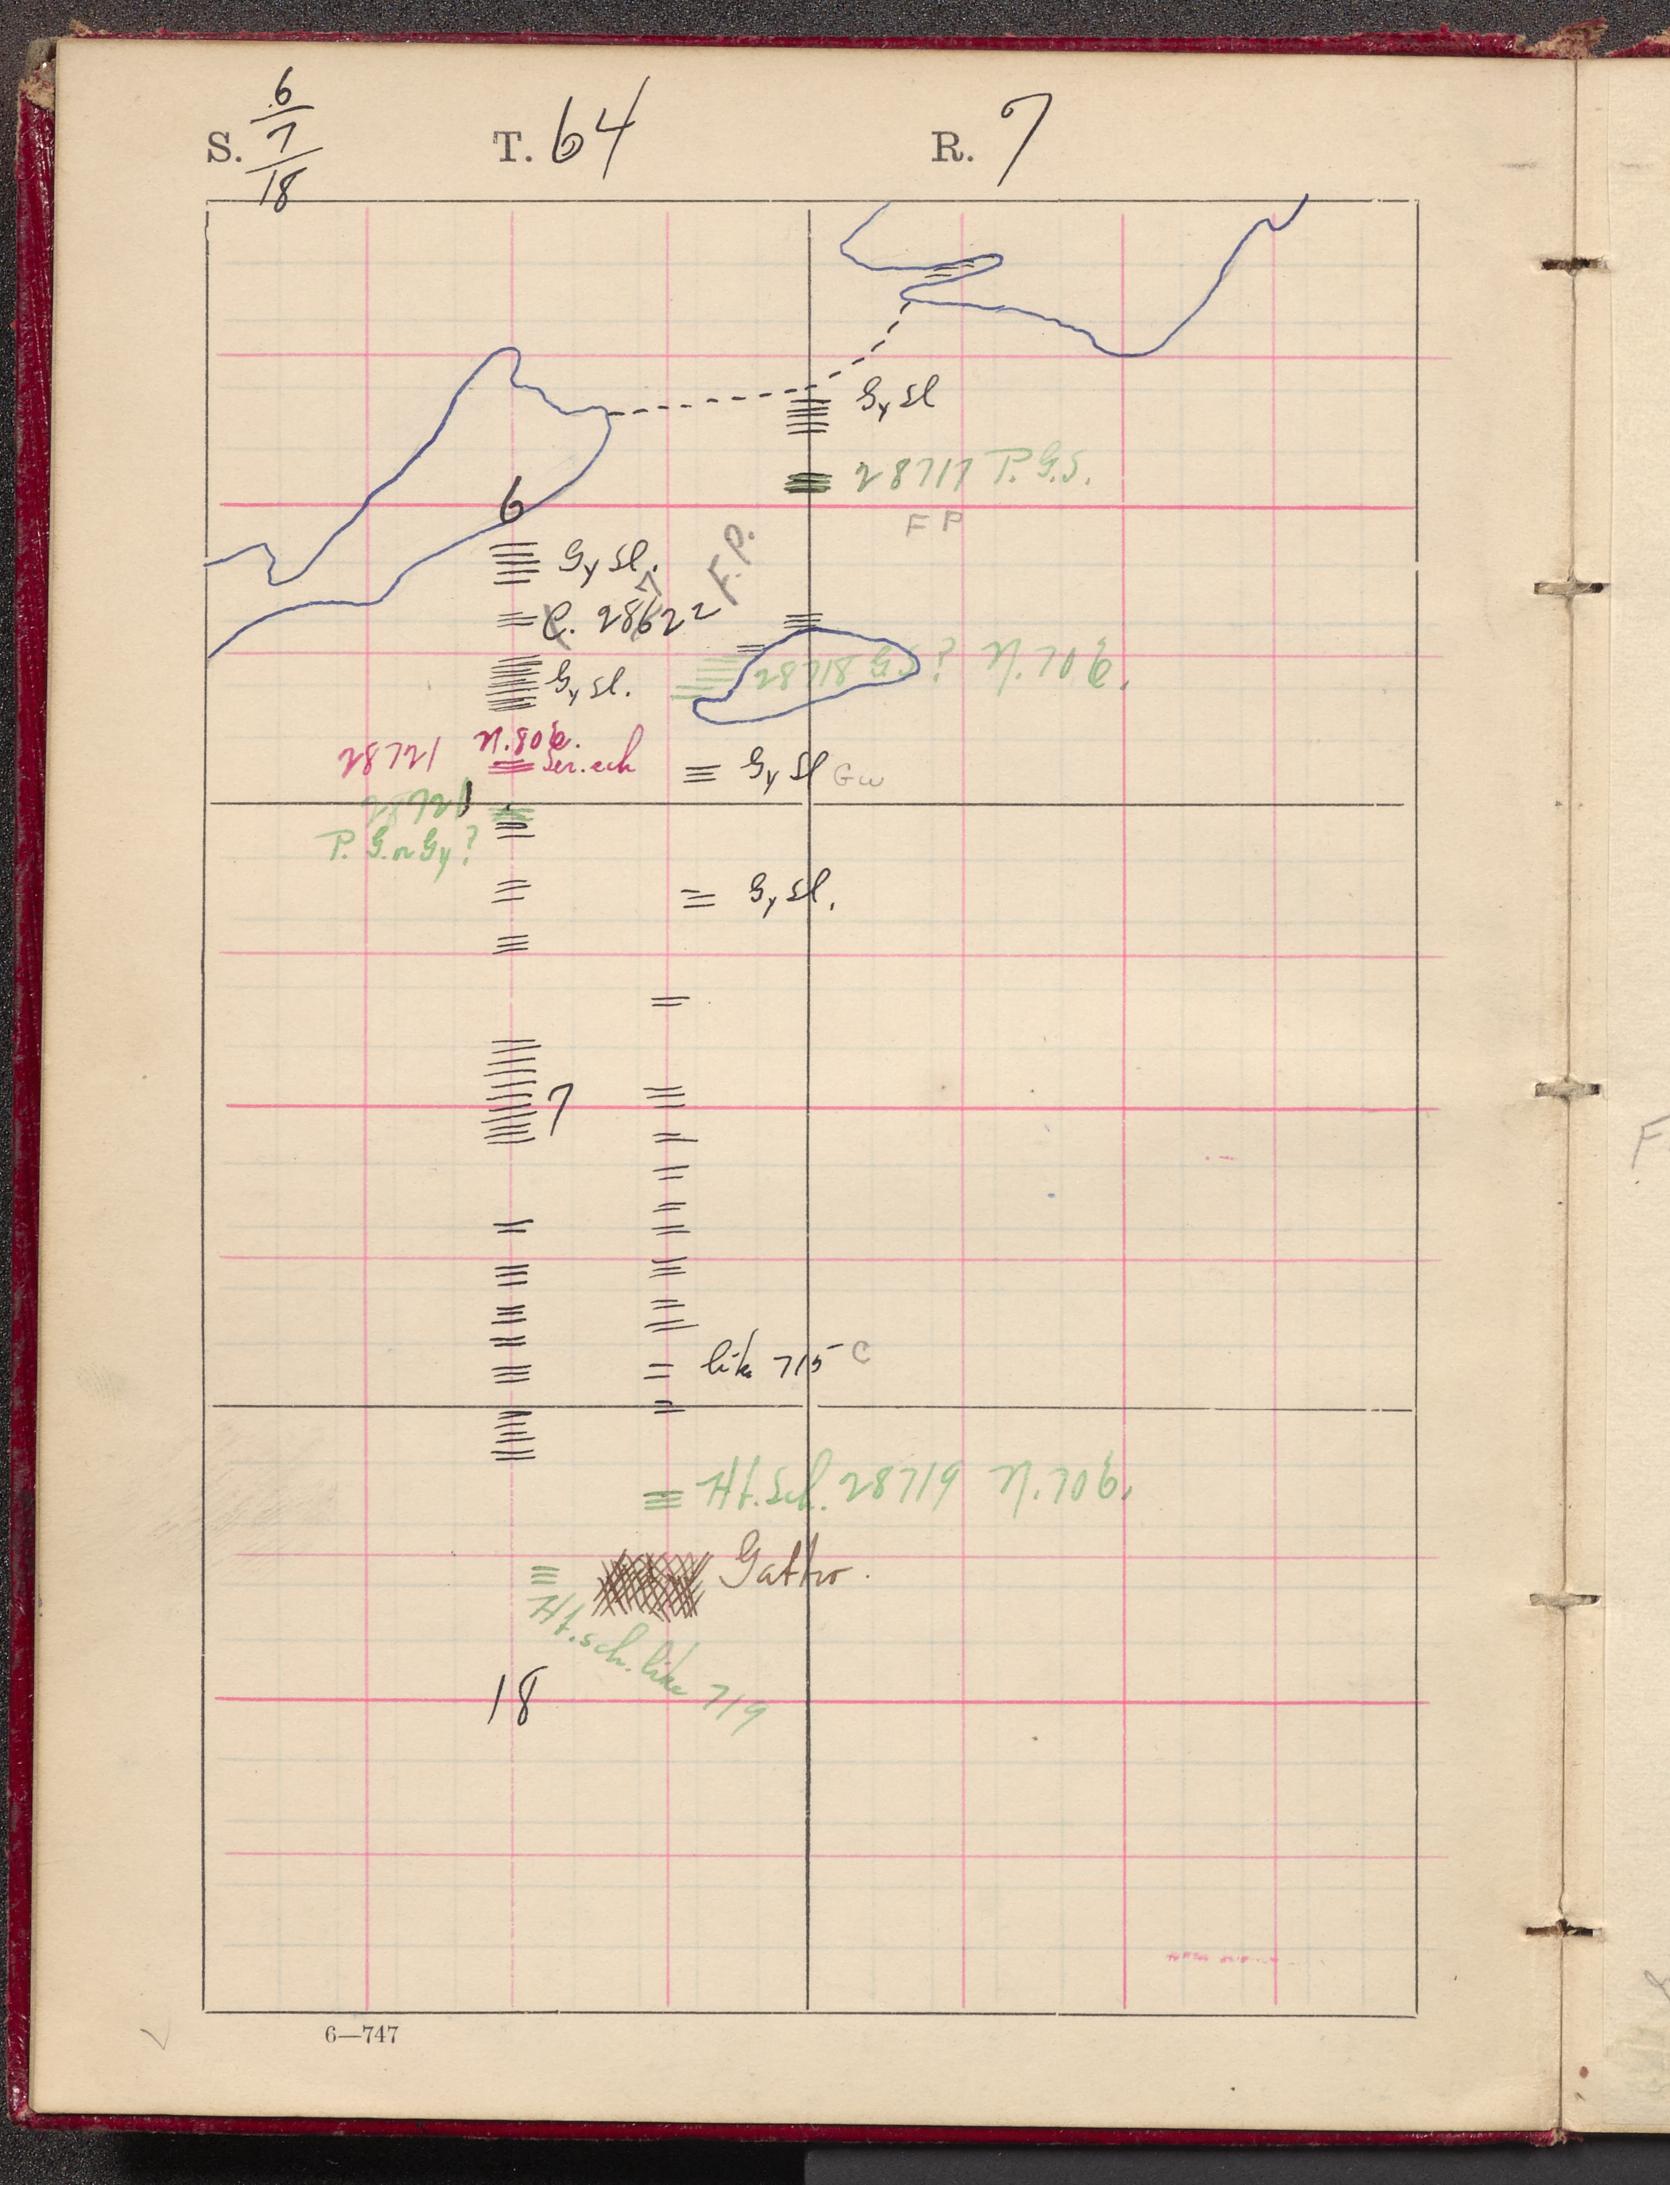 S. 6/7/18 T. 64 R. 7
Gy sl
28717 P.G.S.
F P
6
Gy sl.
F.P.
C. 28622
7
Gy sl.
28718 G.S? N.70E.
28721 N.80E.
Ser. sch
Gy sl Gw
28720
P. G. or Gy?
Gy sl.
7
like 715 C
Ht. Sch. 28719 N.70E.
Gabbro.
Ht. sch. like 719
18
6—747
F